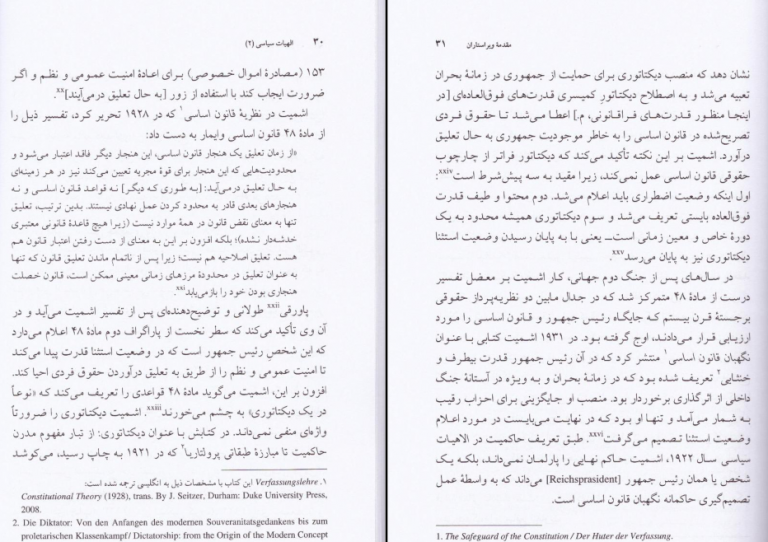 ۳۰ الهیات سیاسی (۲)
۱۵۳ (مصادرهٔ اموال خصوصی) برای اعادهٔ امنیت عمومی و نظم و اگر
ضرورت ایجاب کند با استفاده از زور [به حال تعلیق درمی‌آیند]xx.
اشمیت در نظریهٔ قانون اساسی۱ که در ۱۹۲۸ تحریر کرد، تفسیر ذیل را
از مادهٔ ۴۸ قانون اساسی وایمار به دست داد:
«از زمان تعلیق یک هنجار قانون اساسی، این هنجار دیگر فاقد اعتبار می‌شود و
محدودیت‌هایی که این هنجار برای قوهٔ مجریه تعیین می‌کند نیز در هر زمینه‌ای
به حال تعلیق درمی‌آید: [به طوری که دیگر] نه قواعد قانون اساسی و نه
هنجارهای بعدی قادر به محدود کردن عمل نهادی نیستند. بدین ترتیب، تعلیق
تنها به معنای نقض قانون در همهٔ موارد نیست (زیرا هیچ قاعدهٔ قانونی معتبری
خدشه‌دار نشده)؛ بلکه افزون بر این به معنای از دست رفتن اعتبار قانون هم
هست. تعلیق اصلاحیه هم نیست؛ زیرا پس از ناتمام ماندن تعلیق قانون که تنها
به عنوان تعلیق در محدودهٔ مرزهای زمانی معینی ممکن است، قانون خصلت
هنجاری بودن خود را بازمی‌یابدxxi.
پاورقی xxii طولانی و توضیح‌دهنده‌ای پس از تفسیر اشمیت می‌آید و در
آن وی تأکید می‌کند که سطر نخست از پاراگراف دوم مادهٔ ۴۸ اعلام می‌دارد
که این شخص رئیس جمهور است که در وضعیت استثنا قدرت پیدا می‌کند
تا امنیت عمومی و نظم را از طریق به تعلیق درآوردن حقوق فردی احیا کند.
افزون بر این، اشمیت می‌گوید مادهٔ ۴۸ قواعدی را تعریف می‌کند که «نوعاً
در یک دیکتاتوری» به چشم می‌خورندxxiii. اشمیت دیکتاتوری را ضرورتاً
واژه‌ای منفی نمی‌داند. در کتابش با عنوان دیکتاتوری: از تبار مفهوم مدرن
حاکمیت تا مبارزهٔ طبقاتی پرولتاریا۲ که در ۱۹۲۱ به چاپ رسید، می‌کوشد
۱. Verfassungslehre این کتاب با مشخصات ذیل به انگلیسی ترجمه شده است:
Constitutional Theory (1928), trans. By J. Seitzer, Durham: Duke University Press,
2008.
2. Die Diktator: Von den Anfangen des modernen Souveranitatsgedankens bis zum
proletarischen Klassenkampf/ Dictatorship: from the Origin of the Modern Concept
مقدمهٔ ویراستاران ۳۱
نشان دهد که منصب دیکتاتوری برای حمایت از جمهوری در زمانهٔ بحران
تعبیه می‌شد و به اصطلاح دیکتاتور کمیسری قدرت‌های فوق‌العاده‌ای [در
اینجا منظور قدرت‌های فراقانونی، م.] اعطا می‌شد تا حقوق فردی
تصریح‌شده در قانون اساسی را به خاطر موجودیت جمهوری به حال تعلیق
درآورد. اشمیت بر این نکته تأکید می‌کند که دیکتاتور فراتر از چارچوب
حقوقی قانون اساسی عمل نمی‌کند، زیرا مقید به سه پیش‌شرط استxxiv:
اول اینکه وضعیت اضطراری باید اعلام می‌شد. دوم محتوا و طیف قدرت
فوق‌العاده بایستی تعریف می‌شد و سوم دیکتاتوری همیشه محدود به یک
دورهٔ خاص و معین زمانی است_ یعنی با به پایان رسیدن وضعیت استثنا
دیکتاتوری نیز به پایان می‌رسدxxv.
در سال‌های پس از جنگ دوم جهانی، کار اشمیت بر معضل تفسیر
درست از مادهٔ ۴۸ متمرکز شد که در جدال مابین دو نظریه‌پرداز حقوقی
برجستهٔ قرن بیستم که جایگاه رئیس جمهور و قانون اساسی را مورد
ارزیابی قرار می‌دادند، اوج گرفته بود. در ۱۹۳۱ اشمیت کتابی با عنوان
نگهبان قانون اساسی۱ منتشر کرد که در آن رئیس جمهور قدرت بیطرف و
خنثایی۲ تعریف شده بود که در زمانهٔ بحران و به ویژه در آستانهٔ جنگ
داخلی از اثرگذاری برخوردار بود. منصب او جایگزینی برای احزاب رقیب
به شمار می‌آمد و تنها او بود که در نهایت می‌بایست در مورد اعلام
وضعیت استثنا تصمیم می‌گرفتxxvi. طبق تعریف حاکمیت در الاهیات
سیاسی سال ۱۹۲۲، اشمیت حاکم نهایی را پارلمان نمی‌داند، بلکه یک
شخص یا همان رئیس جمهور [Reichsprasident] می‌داند که به واسطهٔ عمل
تصمیم‌گیری حاکمانه نگهبان قانون اساسی است.
1. The Safeguard of the Constitution / Der Huter der Verfassung.